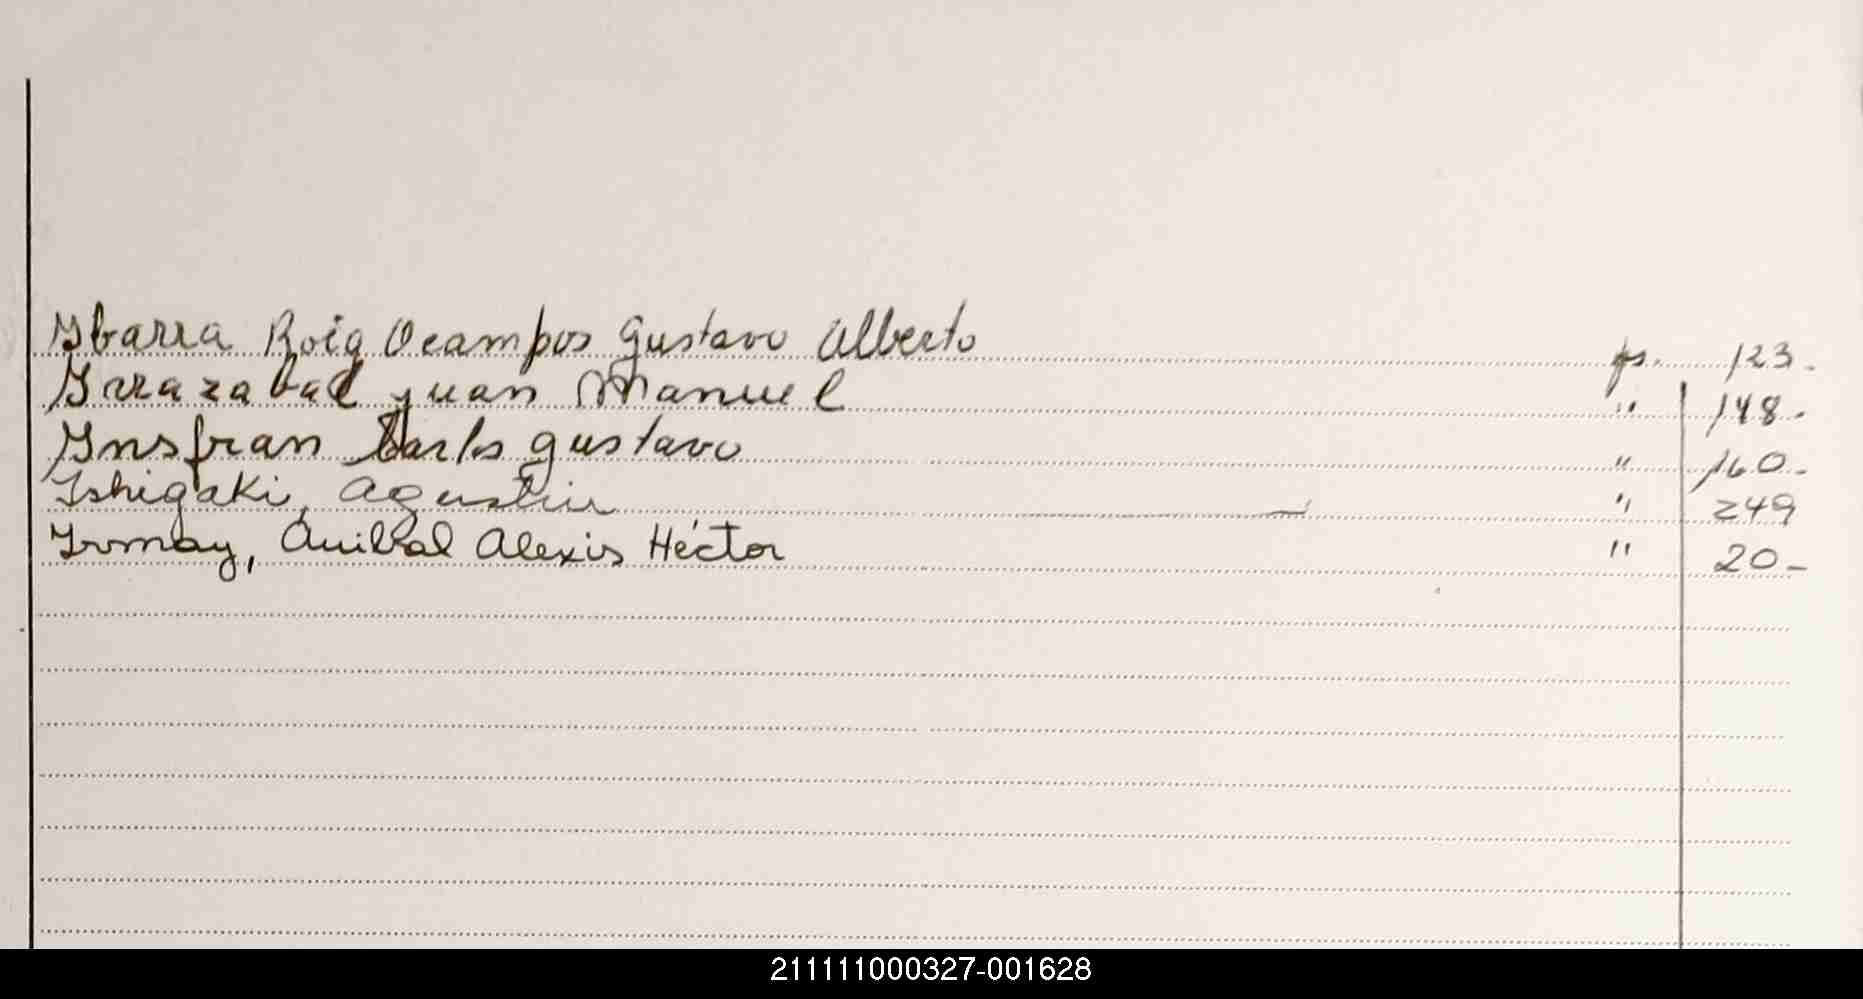 Ibarra Roig Ocampos Gustavo Alberto fs. 123.
Irrazabal Juan Manuel " 148.
Insfran Carlos Gustavo " 160.
Ishigaki, Agustin " 249
Irmay, Anibal Alexis Héctor " 20-
211111000327-001628